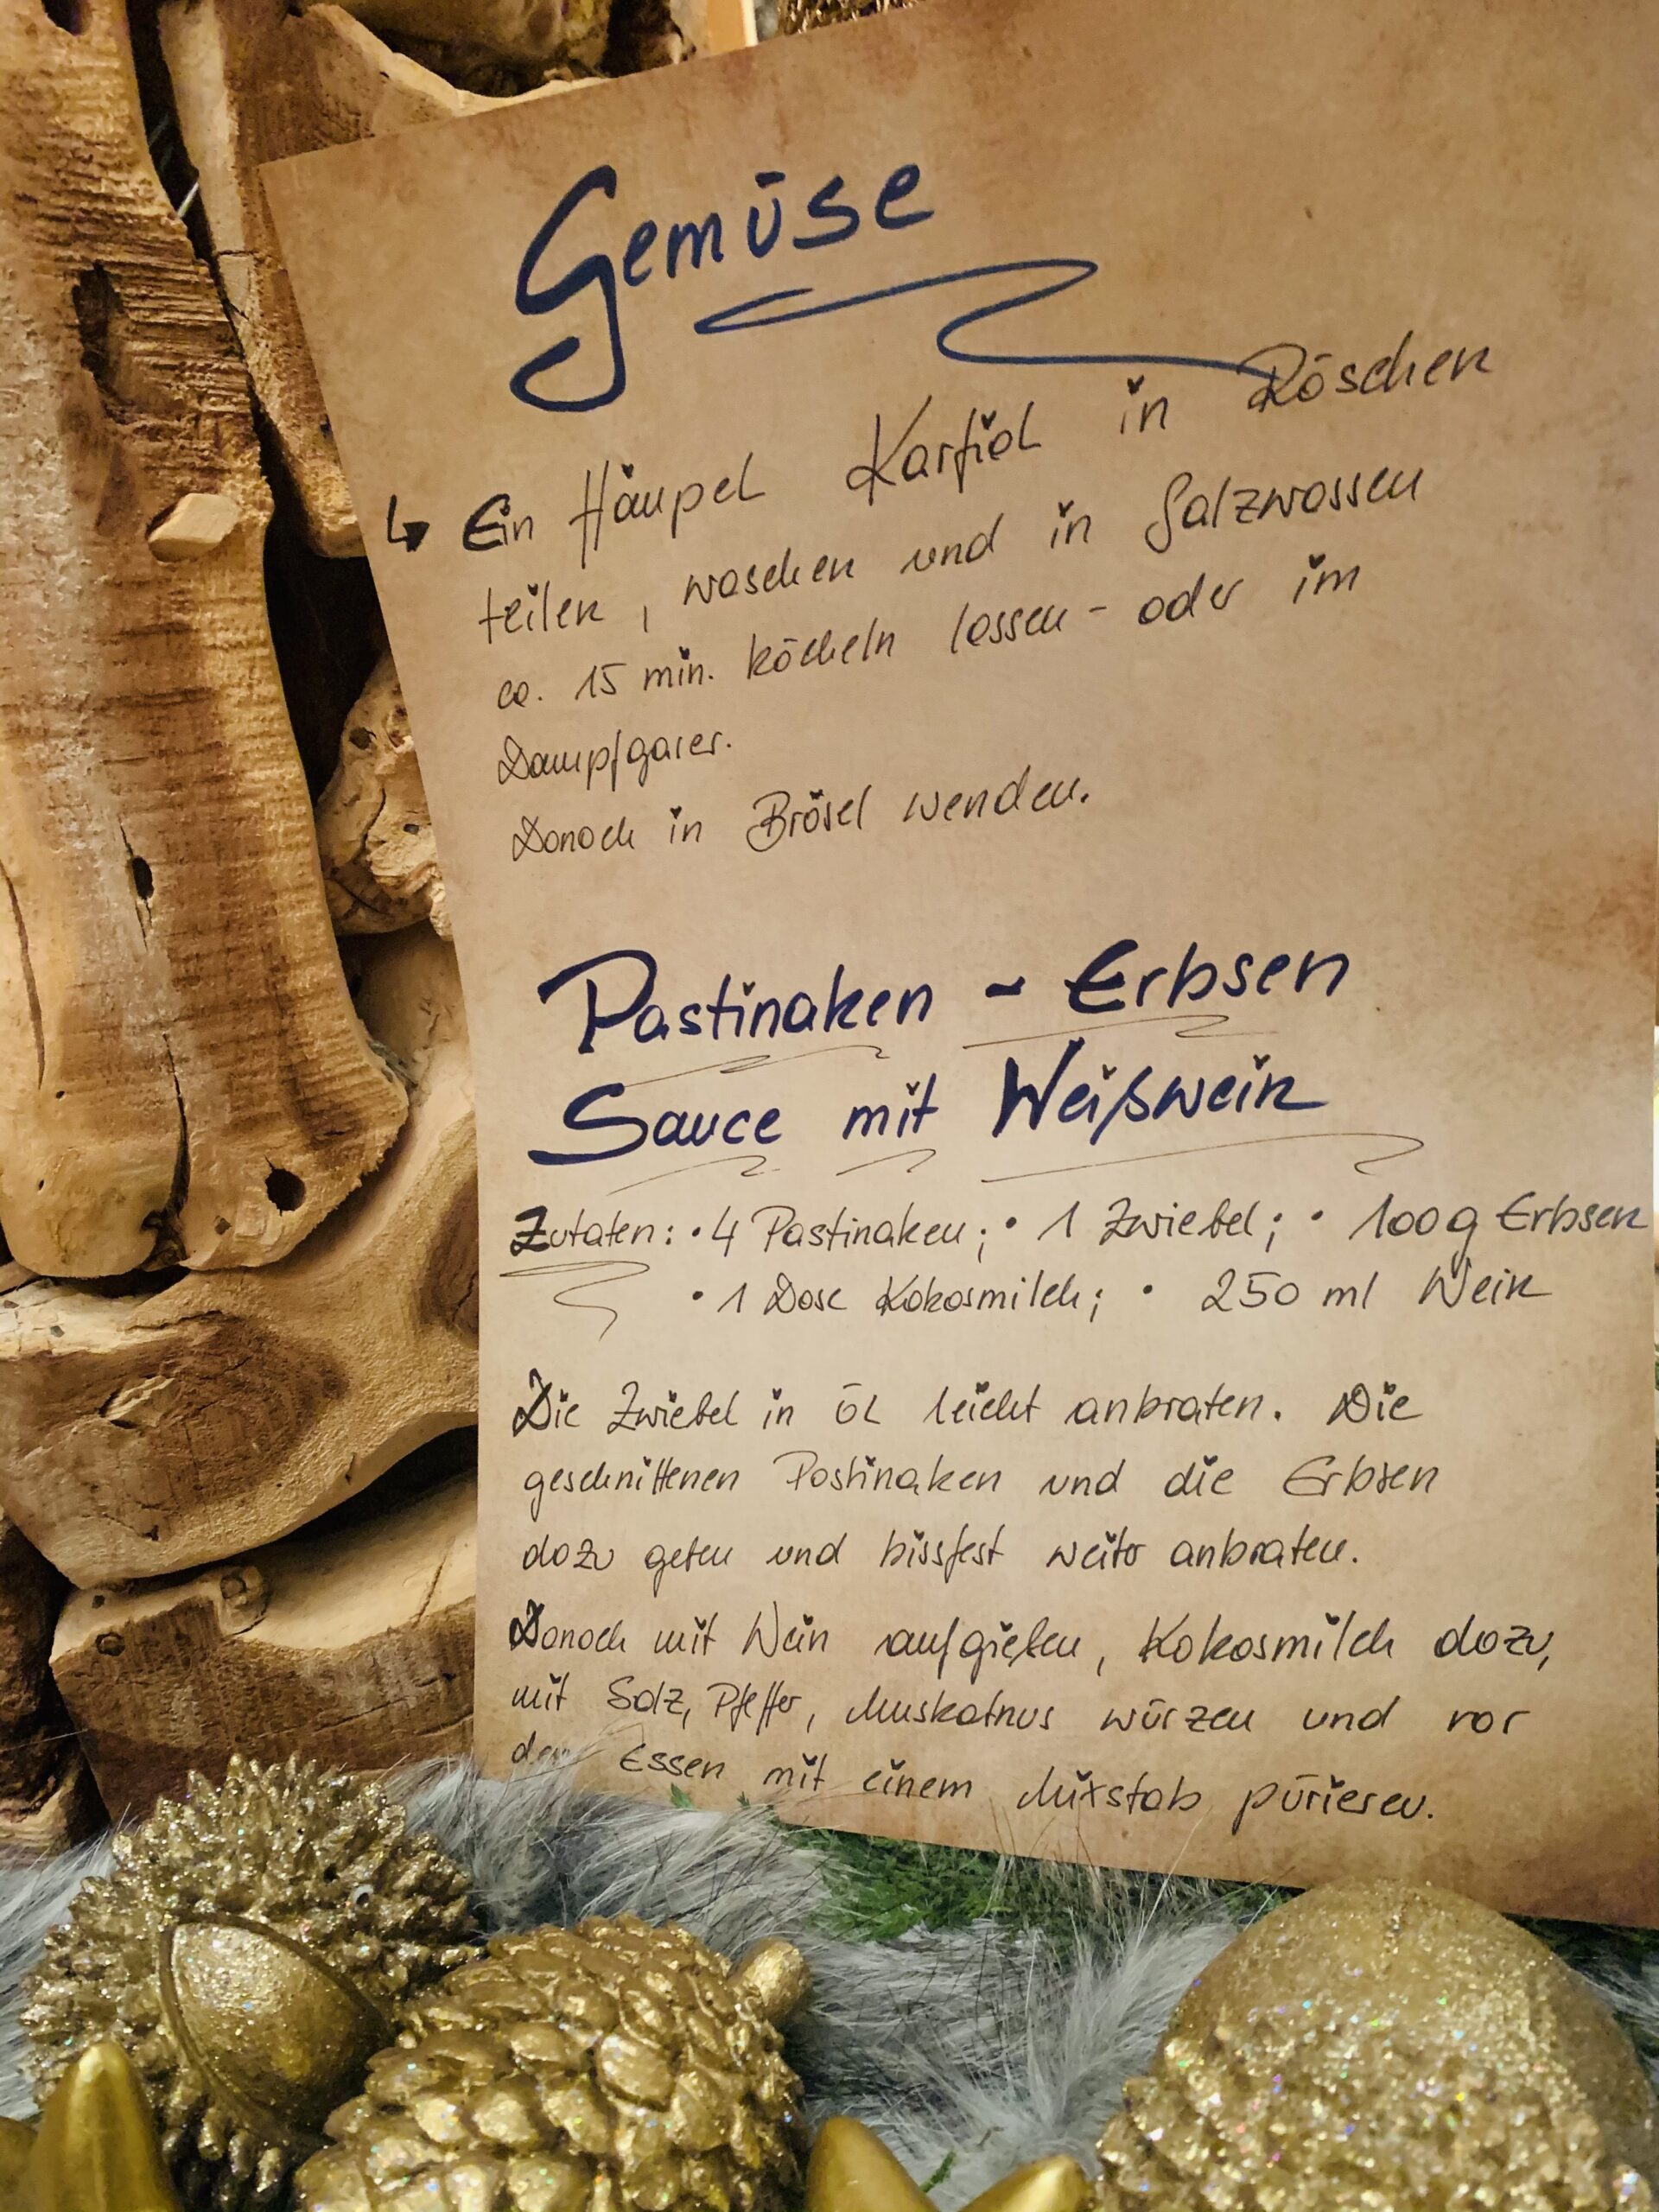 Gemüse
↳ Ein Häupel Karfiol in Röschen
teilen, waschen und in Salzwassen
ca. 15 min. köcheln lassen - oder im
Dampfgarer.
Danach in Brösel wenden.
Pastinaken - Erbsen
Sauce mit Weißwein
Zutaten: • 4 Pastinaken; • 1 Zwiebel; • 100g Erbsen
• 1 Dose Kokosmilch; • 250 ml Wein
Die Zwiebel in Öl leicht anbraten. Die
geschnittenen Pastinaken und die Erbsen
dazu geben und bissfest weiter anbraten.
Danach mit Wein aufgießen, Kokosmilch dazu,
mit Salz, Pfeffer, Muskatnus würzen und vor
dem Essen mit einem Mixstab pürieren.